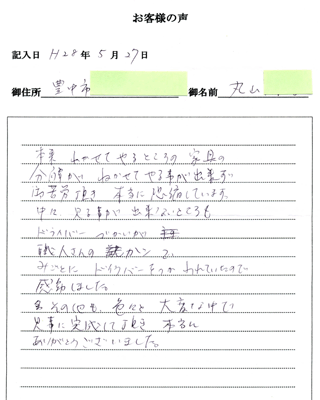 お客様の声
記入日 H28年5月27日
御住所 豊中市 御名前 丸山
本来 ねかせてやるところの 家具の
分解が ねかせてやる事が出来ず
御苦労頂き 本当に恐縮しています。
中に 見る事が 出来ないところも
ドライバー づかいが
職人さんの カン で
みごとに ドライバーをつかわれていたので
感動しました。
その他も、色々と 大変な中で
見事に完成して頂き 本当に
ありがとうございました。